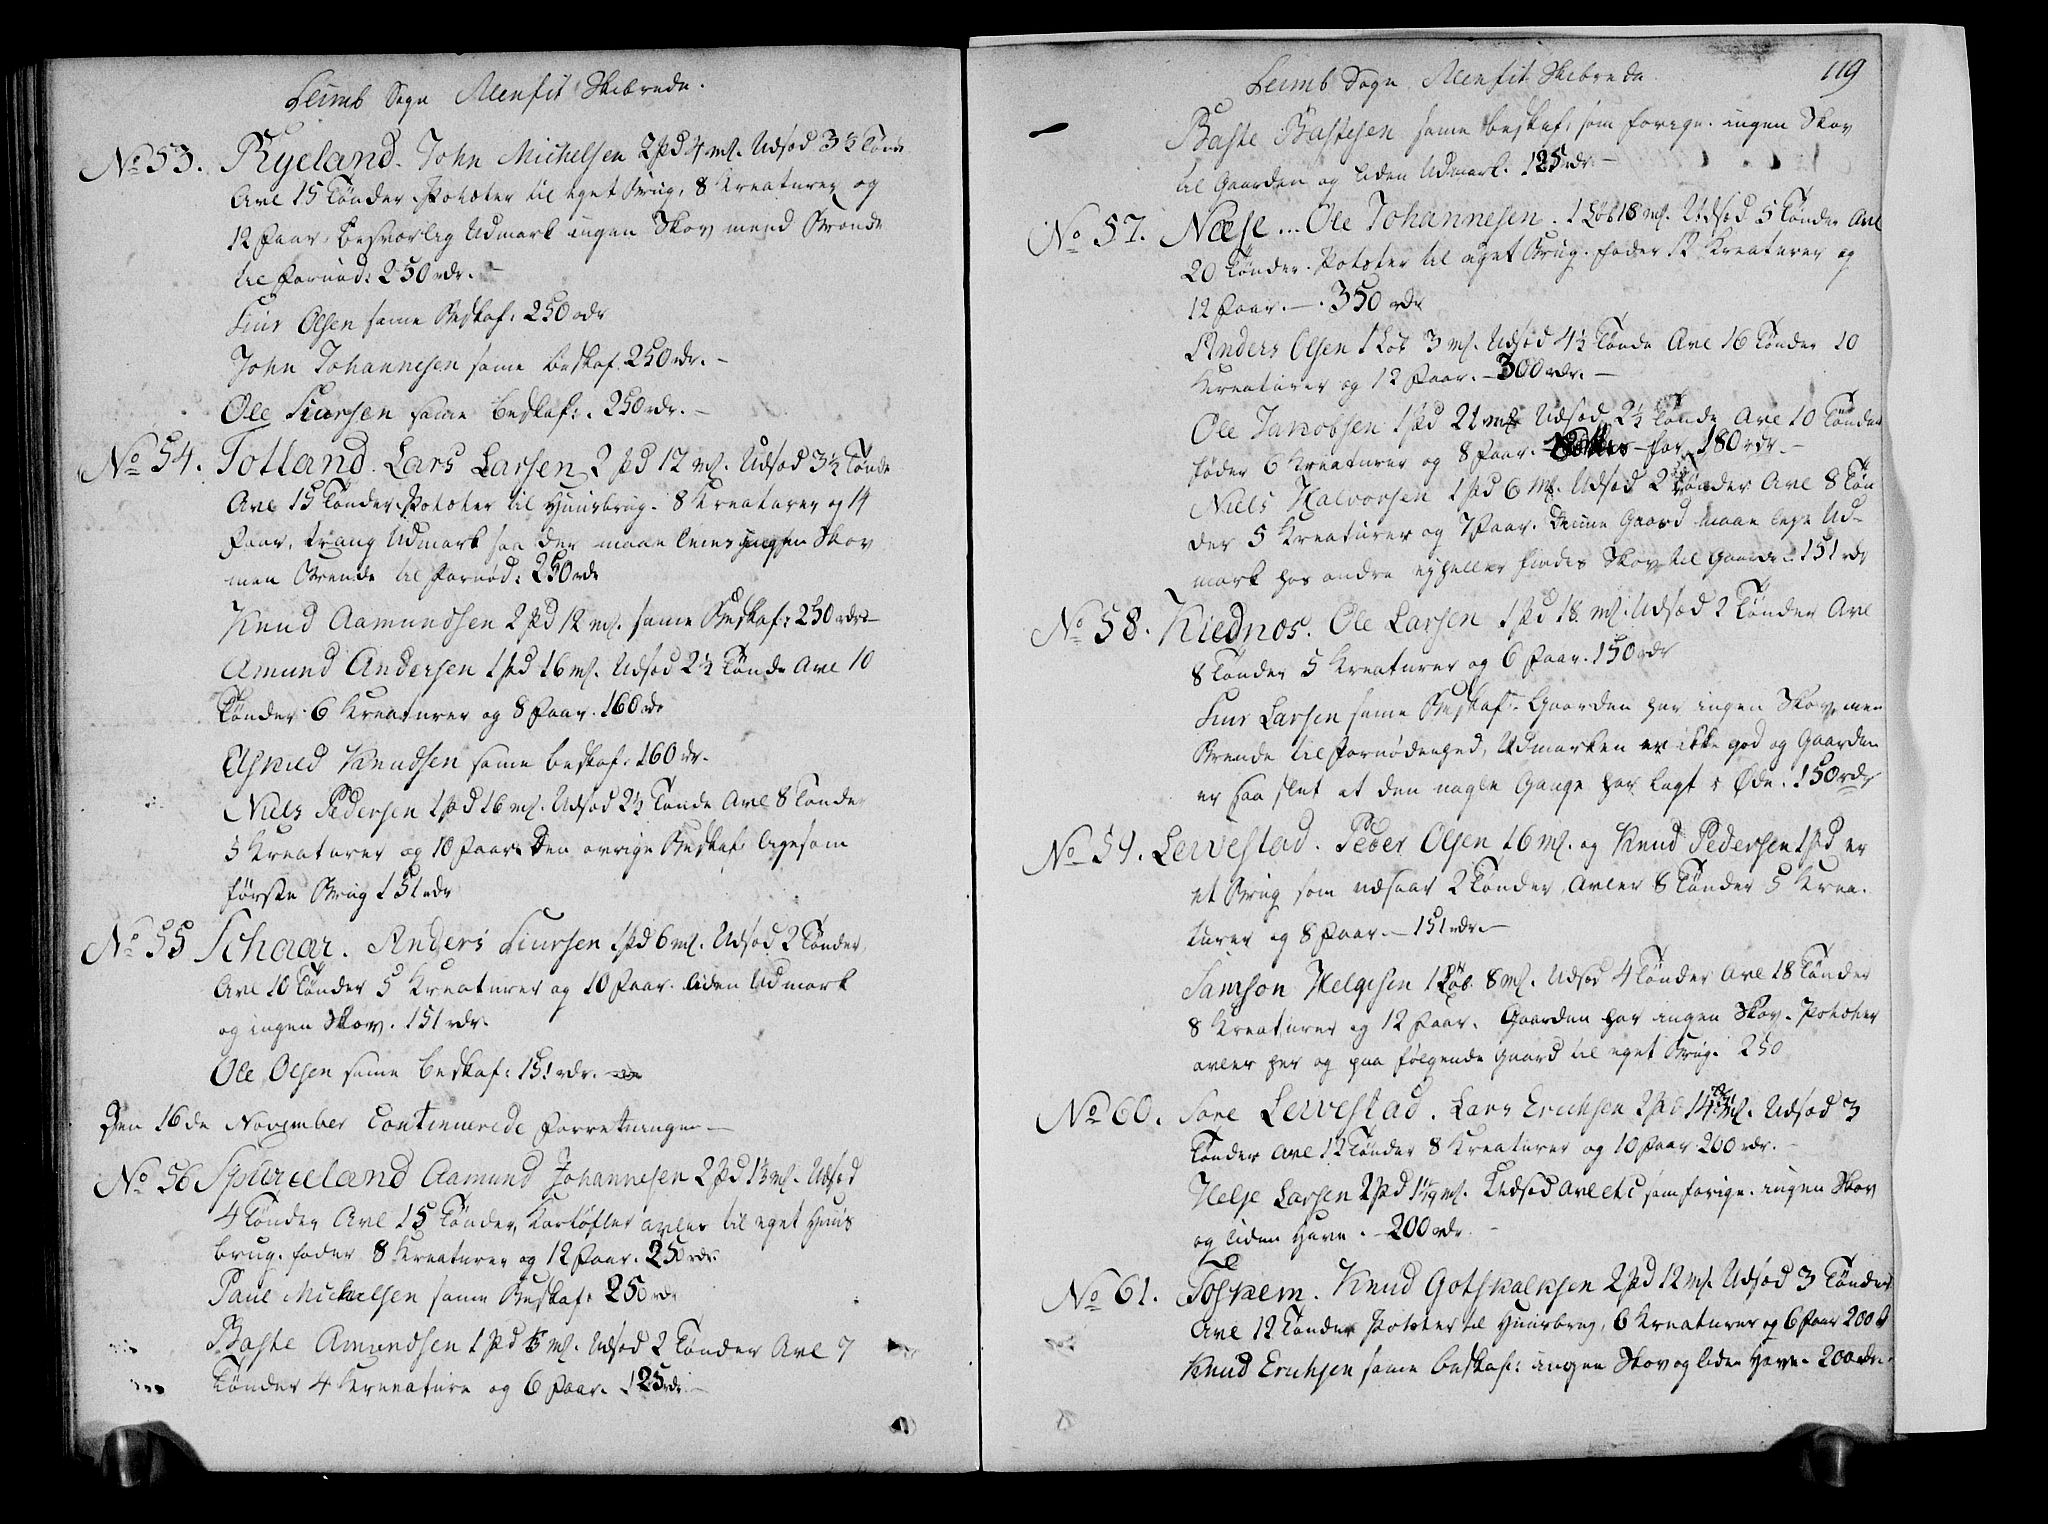 Leines Sogn Alenfit Skibrede.
No 53. Ryeland. John Michelsen 2 pd 4 mk. Udsæd 3½ Tønde
Avl 15 Tønder Poteter til eget Brug, 8 Kreaturer og
12 Faar, besværlig Udmark ingen Skov mend Brende
til fornød: 250 rdr. –
Siur Olsen same Beskaf: 250 rdr
John Johannesen same beskaf. 250 rdr. –
Ole Siursen same beskaf: 250 rdr. –
No 54. Totland. Lars Larsen 2 pd 12 mk. Udsæd 3½ Tønde
Avl 15 Tønder Poteter til Huusbrug. 8 Kreaturer og 14
Faar, trang Udmark saa der maae leies ingen Skov
men Brende til fornød: 250 rdr
Knud Aamundsen 2 pd 12 mk. same Beskaf: 250 rdr –
Amund Andersen 1 pd 16 mk. Udsæd 2½ Tønde Avl 10
Tønder 6 Kreaturer og 8 Faar. 160 rdr
Knudsen same beskaf: 160 rdr.
Niels Pedersen 1 pd 16 mk. Udsæd 2½ Tønde Avl 8 Tønder
5 Kreaturer og 10 Faar Den øvrige Beskaf: ligesom
første Brug 151 rdr
No 55 Schaar. Anders Siursen 1 pd 6 mk. Udsæd 2 Tønder,
Avl 10 Tønder 5 Kreaturer og 10 Faar. liden Udmark
og ingen Skov. 151 rdr.
Ole Olsen same beskaf: 151 rdr.
Den 16de November Continuerede Forretningen –
No 56 Aamund Johannesen 2 pd 1½ mk. Udsæd
4 Tønder Avl 15 Tønder, Kartofler avles til eget Huus
brug. foder 8 Kreaturer og 12 Faar. 250 rdr.
Paul Michelsen same Beskaf: 250 rdr
Baste Amundsen 1 pd mk. Udsæd 2 Tønder Avl 7
Tønder 4 Kreature og 6 Faar. 125 rdr. –
Leines Sogn Alenfit Skibrede
119
Baste Bastesen same beskaf: som forige. ingen Skov
til Gaarden og liden Udmark. 125 rdr. –
No 57. Næse... Ole Johannesen. 1 Løb 18 mk. Udsæd 5 Tønder Avl
20 Tønder. Poteter til eget Brug. foder 12 Kreaturer og
12 Faar. – 350 rdr
Anders Olsen 1 Løb 3 mk. Udsæd 4½ Tønde Avl 16 Tønder 10
Kreaturer og 12 Faar. – 300 rdr. –
Ole Jacobsen 1 pd 21 mk Udsæd 2½ Tønde Avl 10 Tønder
føder 6 Kreaturer og 8 Faar. for 180 rdr. –
Niels Halvorsen 1 pd 6 mk. Udsæd 2 Tønder Avl 8 Tøn
der 5 Kreaturer og 7 Faar. Denne Gaard maae leje Ud-
mark hos andre ey heller findes Skov til Gaarde 151 rdr
No 58. Kiednos. Ole Larsen 1 pd 18 mk. Udsæd 2 Tønder Avl
8 Tønder 5 Kreaturer og 6 Faar. 150 rdr
Siur Larsen same Beskaf. Gaarden har ingen Skov, men
Brende til Fornødenhed, Udmarken er ikke god og Gaarden
er saa slet at den nogle Gange har lagt i Øde. 150 rdr
No 59. Lervestad. Peder Olsen 16 mk. og Knud Pedersen 1 pd er
et Brug som udsaar 2 Tønder Avler 8 Tønder 5 Krea-
turer og 8 Faar. – 151 rdr. –
Samson Helgesen 1 Løb. 8 mk. Udsæd 4 Tønder Avl 18 Tønder
8 Kreaturer og 12 Faar. Gaarden har ingen Skov. Poteter
avles her og paa følgende Gaard til eget Brug. 250
No 60. Søre Lervestad. Lars Erichsen 2 pd 14 mk. Udsæd 3
Tønder Avl 12 Tønder 8 Kreaturer og 10 Faar 200 rdr. –
Helje Larsen 2 pd mk. Udsæd Avl etc som forige. ingen Skov
og liden Have. – 200 rdr. –
No 61. Toskem. Knud Gotskalksen 2 pd 12 mk. Udsæd 3 Tønder
Avl 12 Tønder Poteter til Huusbrug, 6 Kreaturer og 6 Faar 200
Knud Erichsen same beskaf: ingen Skov og liden Have. 200 rdr.